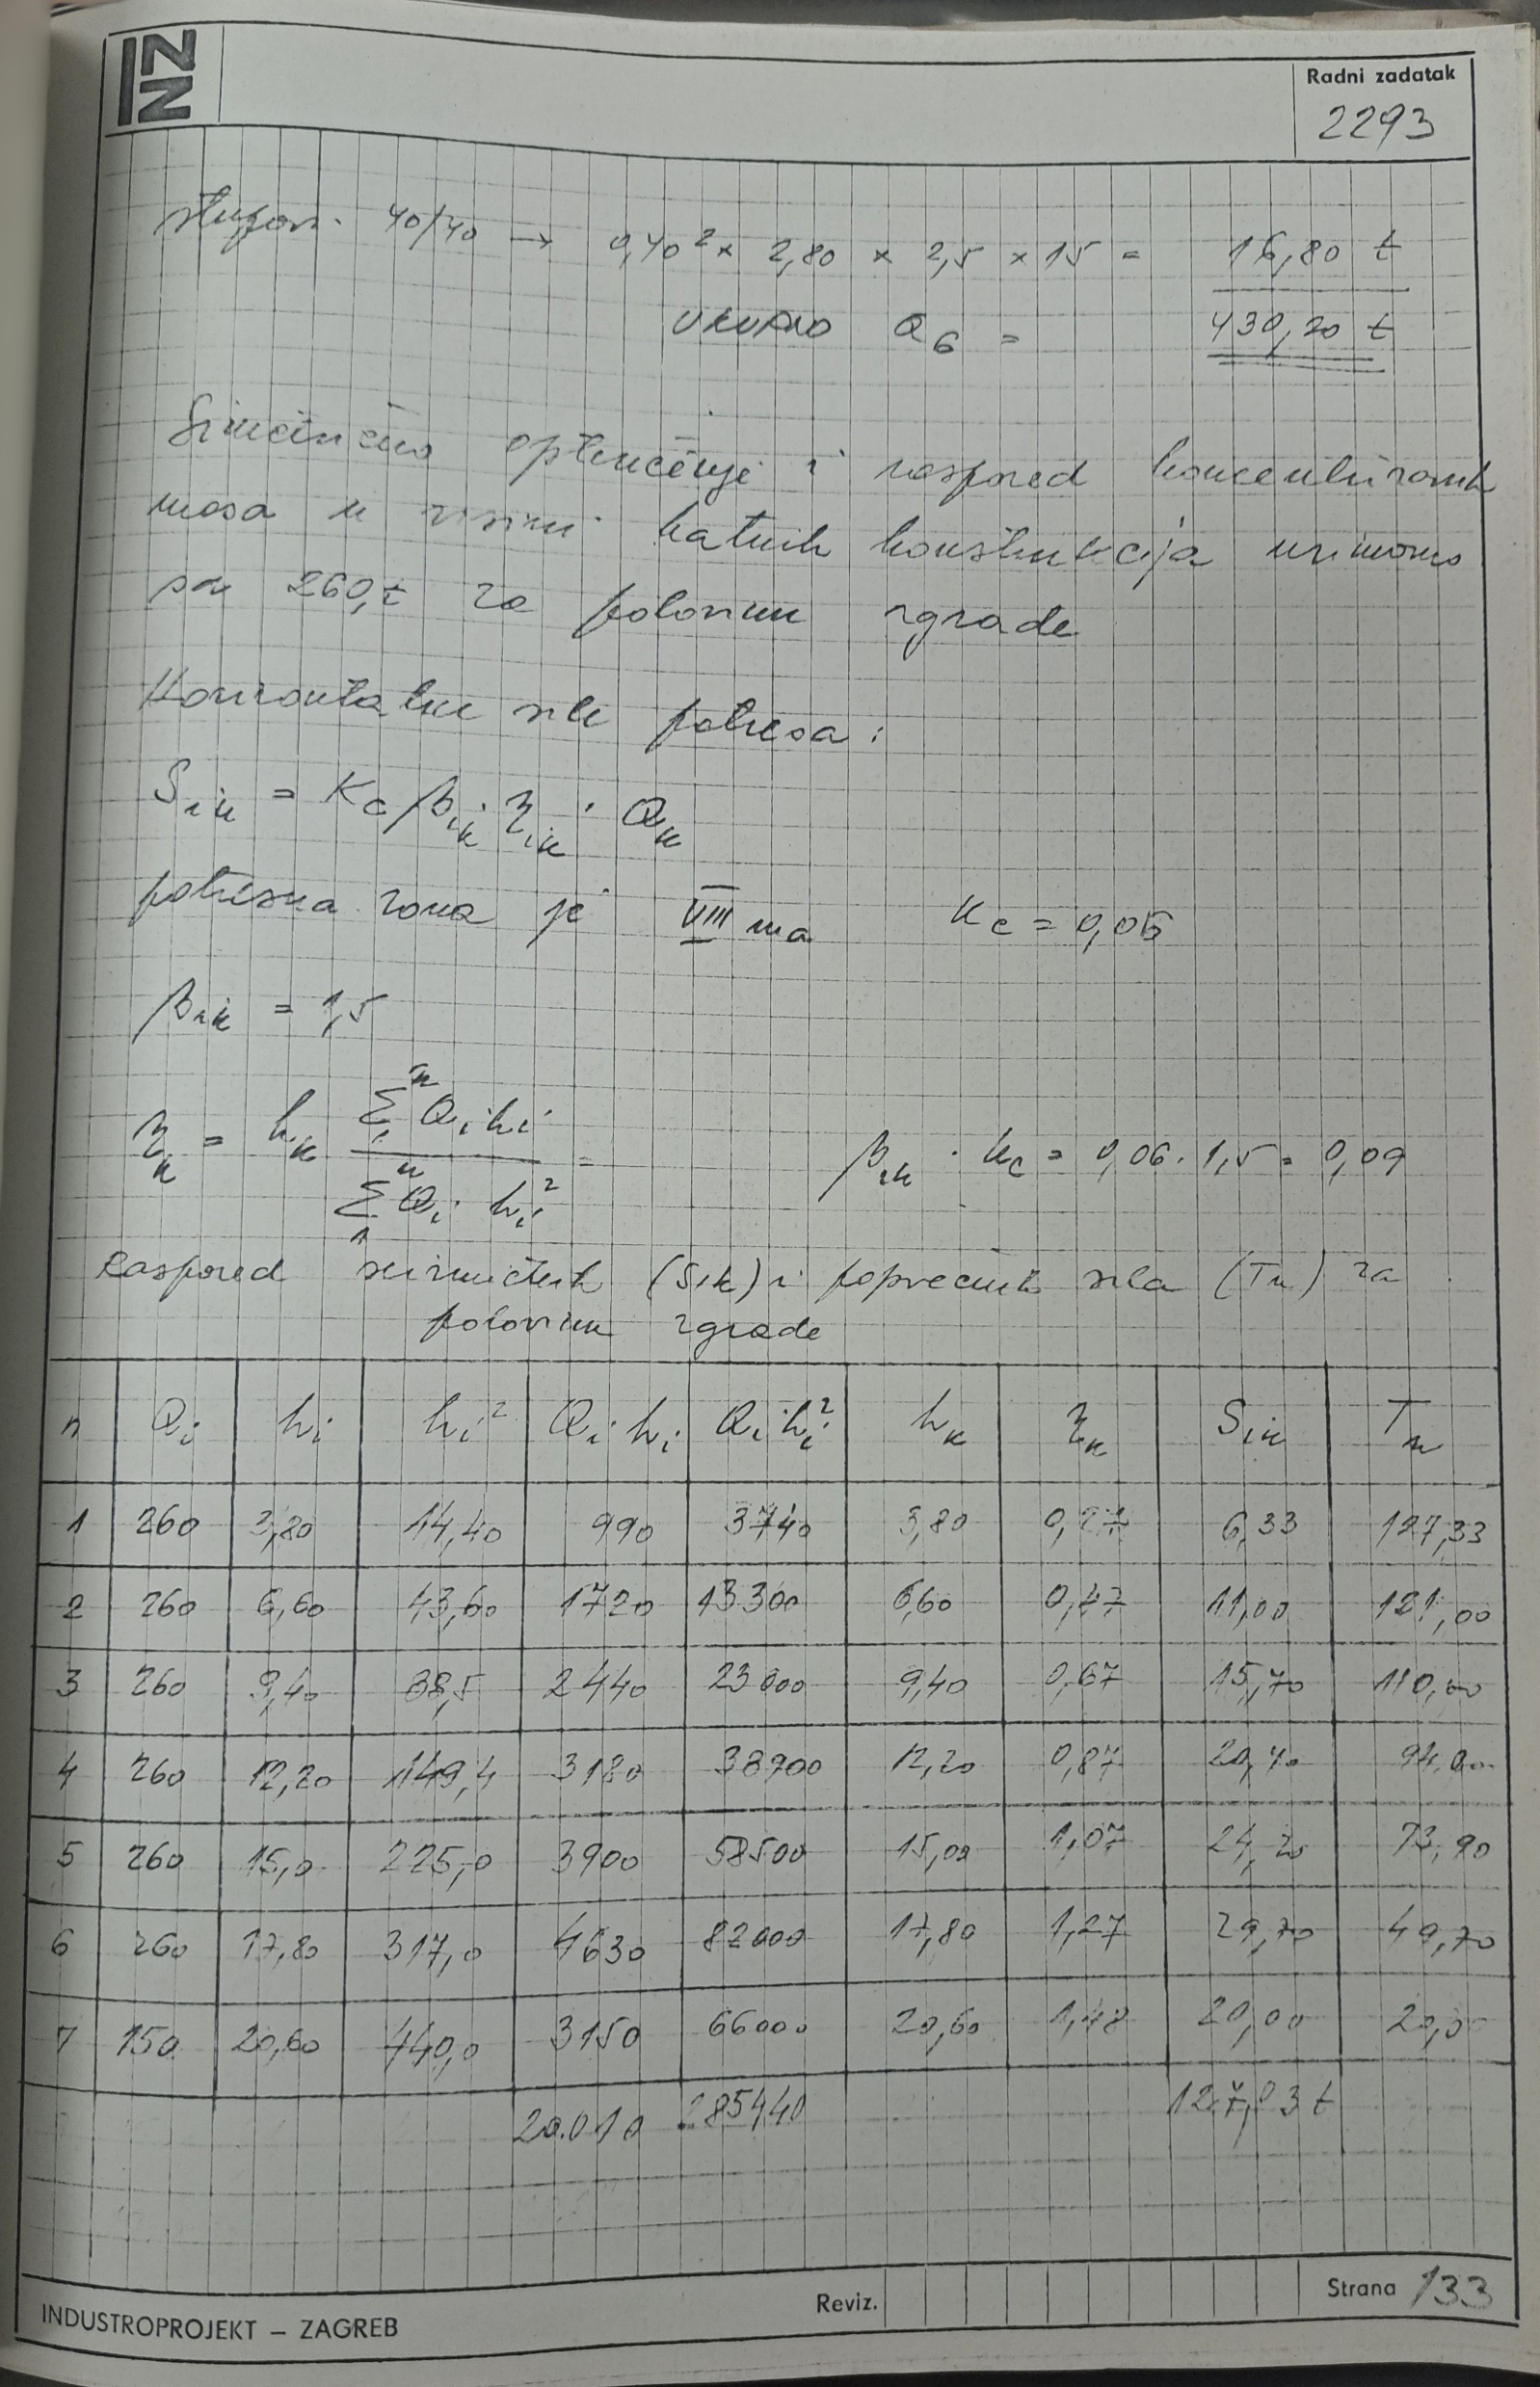 INZ
Radni zadatak
2293
stupovi 40/40 → 0,40² x 2,80 x 2,5 x 15 = 16,80 t
UKUPNO Q6 = 430,20 t
opterećenje i raspored koncentriranih
masa u visini katnih konstrukcija uzimamo
sa 260,t za polovinu zgrade
Horizontalne sile potresa:
Sik = Kc βik · ηik · Qk
potresna zona je VIII ma Kc = 0,06
βik = 1,5
ηk = hk Σ Qi hi / Σ Qi hi² = βik · Kc = 0,06 · 1,5 = 0,09
Raspored seizmičkih (Sik) i poprečnih sila (Tn) za
polovinu zgrade
n Qi hi hi² Qi hi Qi hi² hk ηk Sik Tn
1 260 3,80 14,40 990 3740 3,80 0,27 6,33 127,33
2 260 6,60 43,60 1720 13300 6,60 0,47 11,00 121,00
3 260 9,40 88,5 2440 23000 9,40 0,67 15,70 110,00
4 260 12,20 149,4 3180 38900 12,20 0,87 20,40 94,00
5 260 15,0 225,0 3900 58500 15,00 1,07 24,20 73,90
6 260 17,80 317,0 4630 82000 17,80 1,27 29,70 49,70
7 150 20,60 440,0 3150 66000 20,60 1,48 20,00 20,00
20.010 285440 127,33 t
INDUSTROPROJEKT – ZAGREB
Reviz.
Strana 133